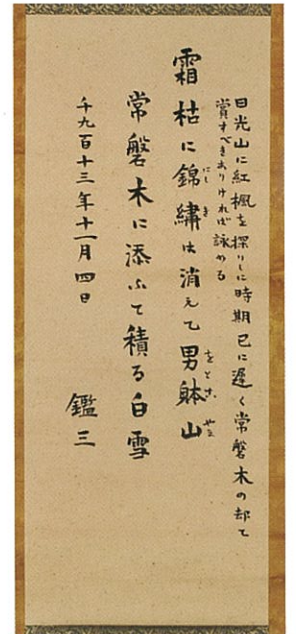 日光山に紅楓を探りしに時期已に遅く常磐木の却て
賞すべきありければ詠める
霜枯に錦繍は消えて男躰山
にしき
をとこやま
常磐木に添ふて積る白雪
千九百十三年十一月四日
鑑三